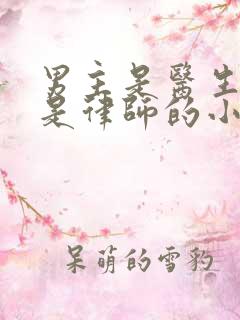 男主是醫生
是律師的小
呆萌的雪豹